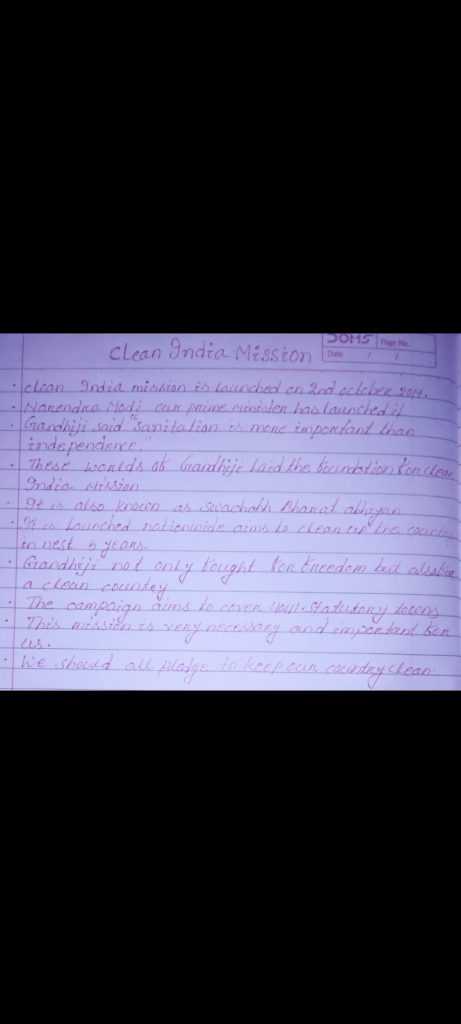 SOMS Page No.
Date / /
Clean India Mission
• clean India mission is launched on 2nd october 2014.
• Narendra Modi our prime minister has launched it
• Gandhiji said "sanitation is more important than
independence."
• These worlds of Gandhiji laid the foundation for clean
India Mission
• It is also known as swachchh Bharat abhiyan
• It is launched nationwide aims to clean up the country
in nest 5 years.
• Gandhiji not only fought for freedom but also for
a clean country
• The campaign aims to cover 4041 statutory towns
• This mission is very necessary and important for
us.
• We should all pledge to keep our country clean.